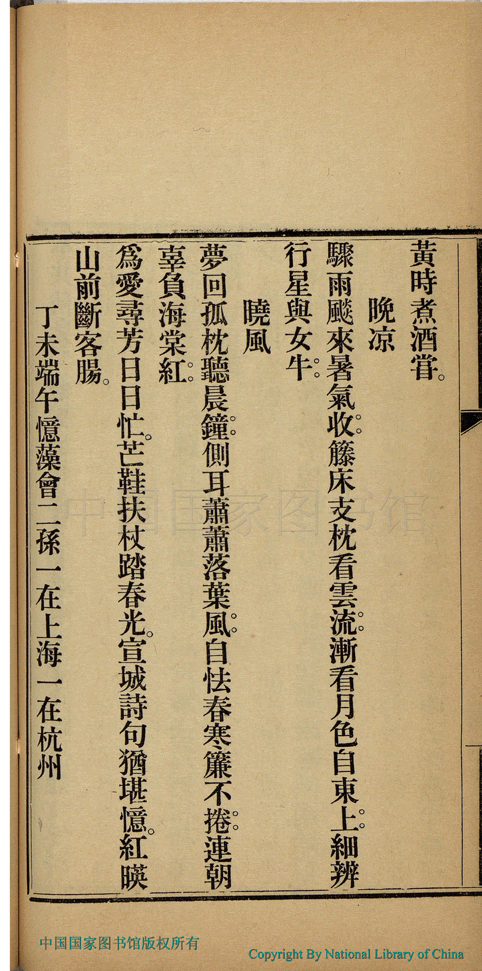 黃時煮酒嘗。
晚凉
驟雨颷來暑氣收。籐床支枕看雲流。漸看月色自東上。細辨
行星與女牛。
曉風
夢回孤枕聽晨鐘。側耳蕭蕭落葉風。自怯春寒簾不捲。連朝
辜負海棠紅。
爲愛尋芳日日忙。芒鞋扶杖踏春光。宣城詩句猶堪憶。紅暎
山前斷客腸。
丁未端午憶藻會二孫一在上海一在杭州
中国国家图书馆
中国国家图书馆版权所有
Copyright By National Library of China